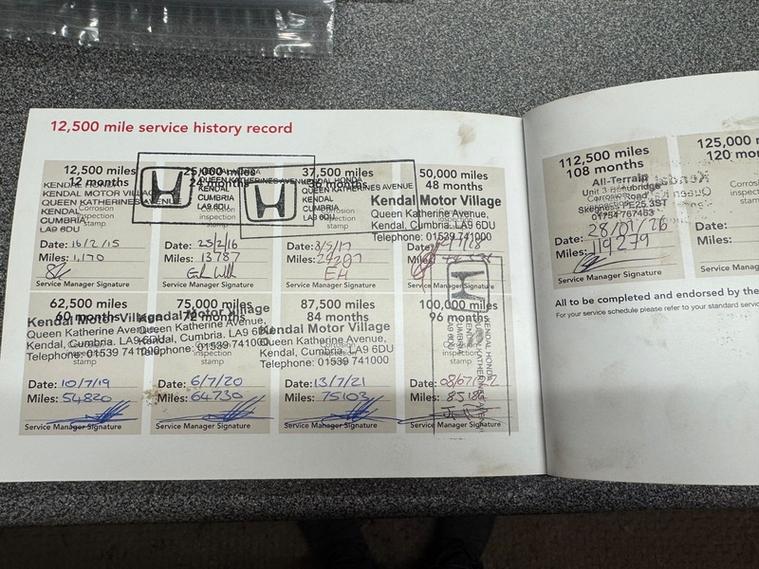 12,500 mile service history record
12,500 miles
12 months
KENDAL MOTOR VILLAGE
QUEEN KATHERINES AVENUE
KENDAL
CUMBRIA
LA9 6DU
Date: 16/2/15
Miles: 1,170
Service Manager Signature
25,000 miles
24 months
QUEEN KATHERINES AVENUE
KENDAL
CUMBRIA
LA9 6DU.
Corrosion
inspection
stamp
Date: 25/2/16
Miles: 13787
Service Manager Signature
37,500 miles
36 months
KENDAL HONDA
QUEEN KATHERINES AVENUE
KENDAL
CUMBRIA
LA9 6DU.
Corrosion
inspection
stamp
Date: 3/5/17
Miles:
EH
Service Manager Signature
50,000 miles
48 months
Kendal Motor Village
Queen Katherine Avenue,
Kendal, Cumbria. LA9 6DU
Telephone: 01539 741000
Date:
Miles:
Service Manager Signature
62,500 miles
60 months
Kendal Motor Village
Queen Katherine Avenue
Kendal, Cumbria. LA9 6DU
Telephone: 01539 741000
Date: 10/7/19
Miles: 54820
Service Manager Signature
75,000 miles
72 months
Kendal Motor Village
Queen Katherine Avenue
Kendal, Cumbria. LA9 6DU
Telephone: 01539 741000
inspection
stamp
Date: 6/7/20
Miles: 64730
Service Manager Signature
87,500 miles
84 months
Kendal Motor Village
Queen Katherine Avenue,
Kendal, Cumbria. LA9 6DU
Telephone: 01539 741000
Date: 13/7/21
Miles: 75103
Service Manager Signature
100,000 miles
96 months
Corrosion
inspection
stamp
KENDAL HONDA
Date:
Miles: 85186
Service Manager Signature
112,500 miles
108 months
All-Terrain
Skegness PE25 3ST
01754 767453
Date: 28/01/26
Miles: 119279
Service Manager Signature
125,000
120 mo
Date:
Miles:
Service Man
All to be completed and endorsed by the
For your service schedule please refer to your standard servic